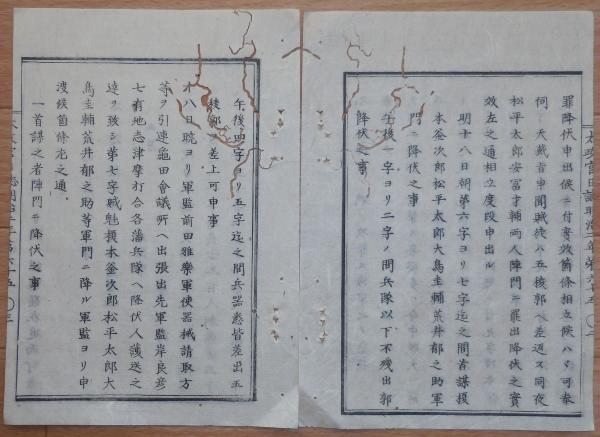 太政官日誌明治二年第六十五
罪降伏申出候ニ付實效箇條相立候ハヽ可奉
伺 天裁旨申聞賊徒ハ五稜郭ヘ差返ス同夜
松平太郎安富才輔両人陣門ニ罷出降伏之實
效左之通相立度段申出ル
明十八日朝第六字ヨリ七字迄之間首謀榎
本釜次郎松平太郎大鳥圭輔荒井郁之助軍
門ニ降伏之事
午後一字ヨリ二字ノ間兵隊以下不残出郭
降伏之事
午後四字ヨリ五字迄之間兵器悉皆差出五
稜郭差上可申事
十八日暁ヨリ軍監前田雅樂軍使器械請取方
等ヲ引連亀田會議所ヘ出張出先軍監岸良彦
七有地志津摩打合各藩兵隊ヘ降伏人護送之
達ヲ致シ第七字賊魁榎本釜次郎松平太郎大
鳥圭輔荒井郁之助等軍門ニ降ル軍監ヨリ申
渡候箇條左之通
一首謀之者陣門ニテ降伏之事